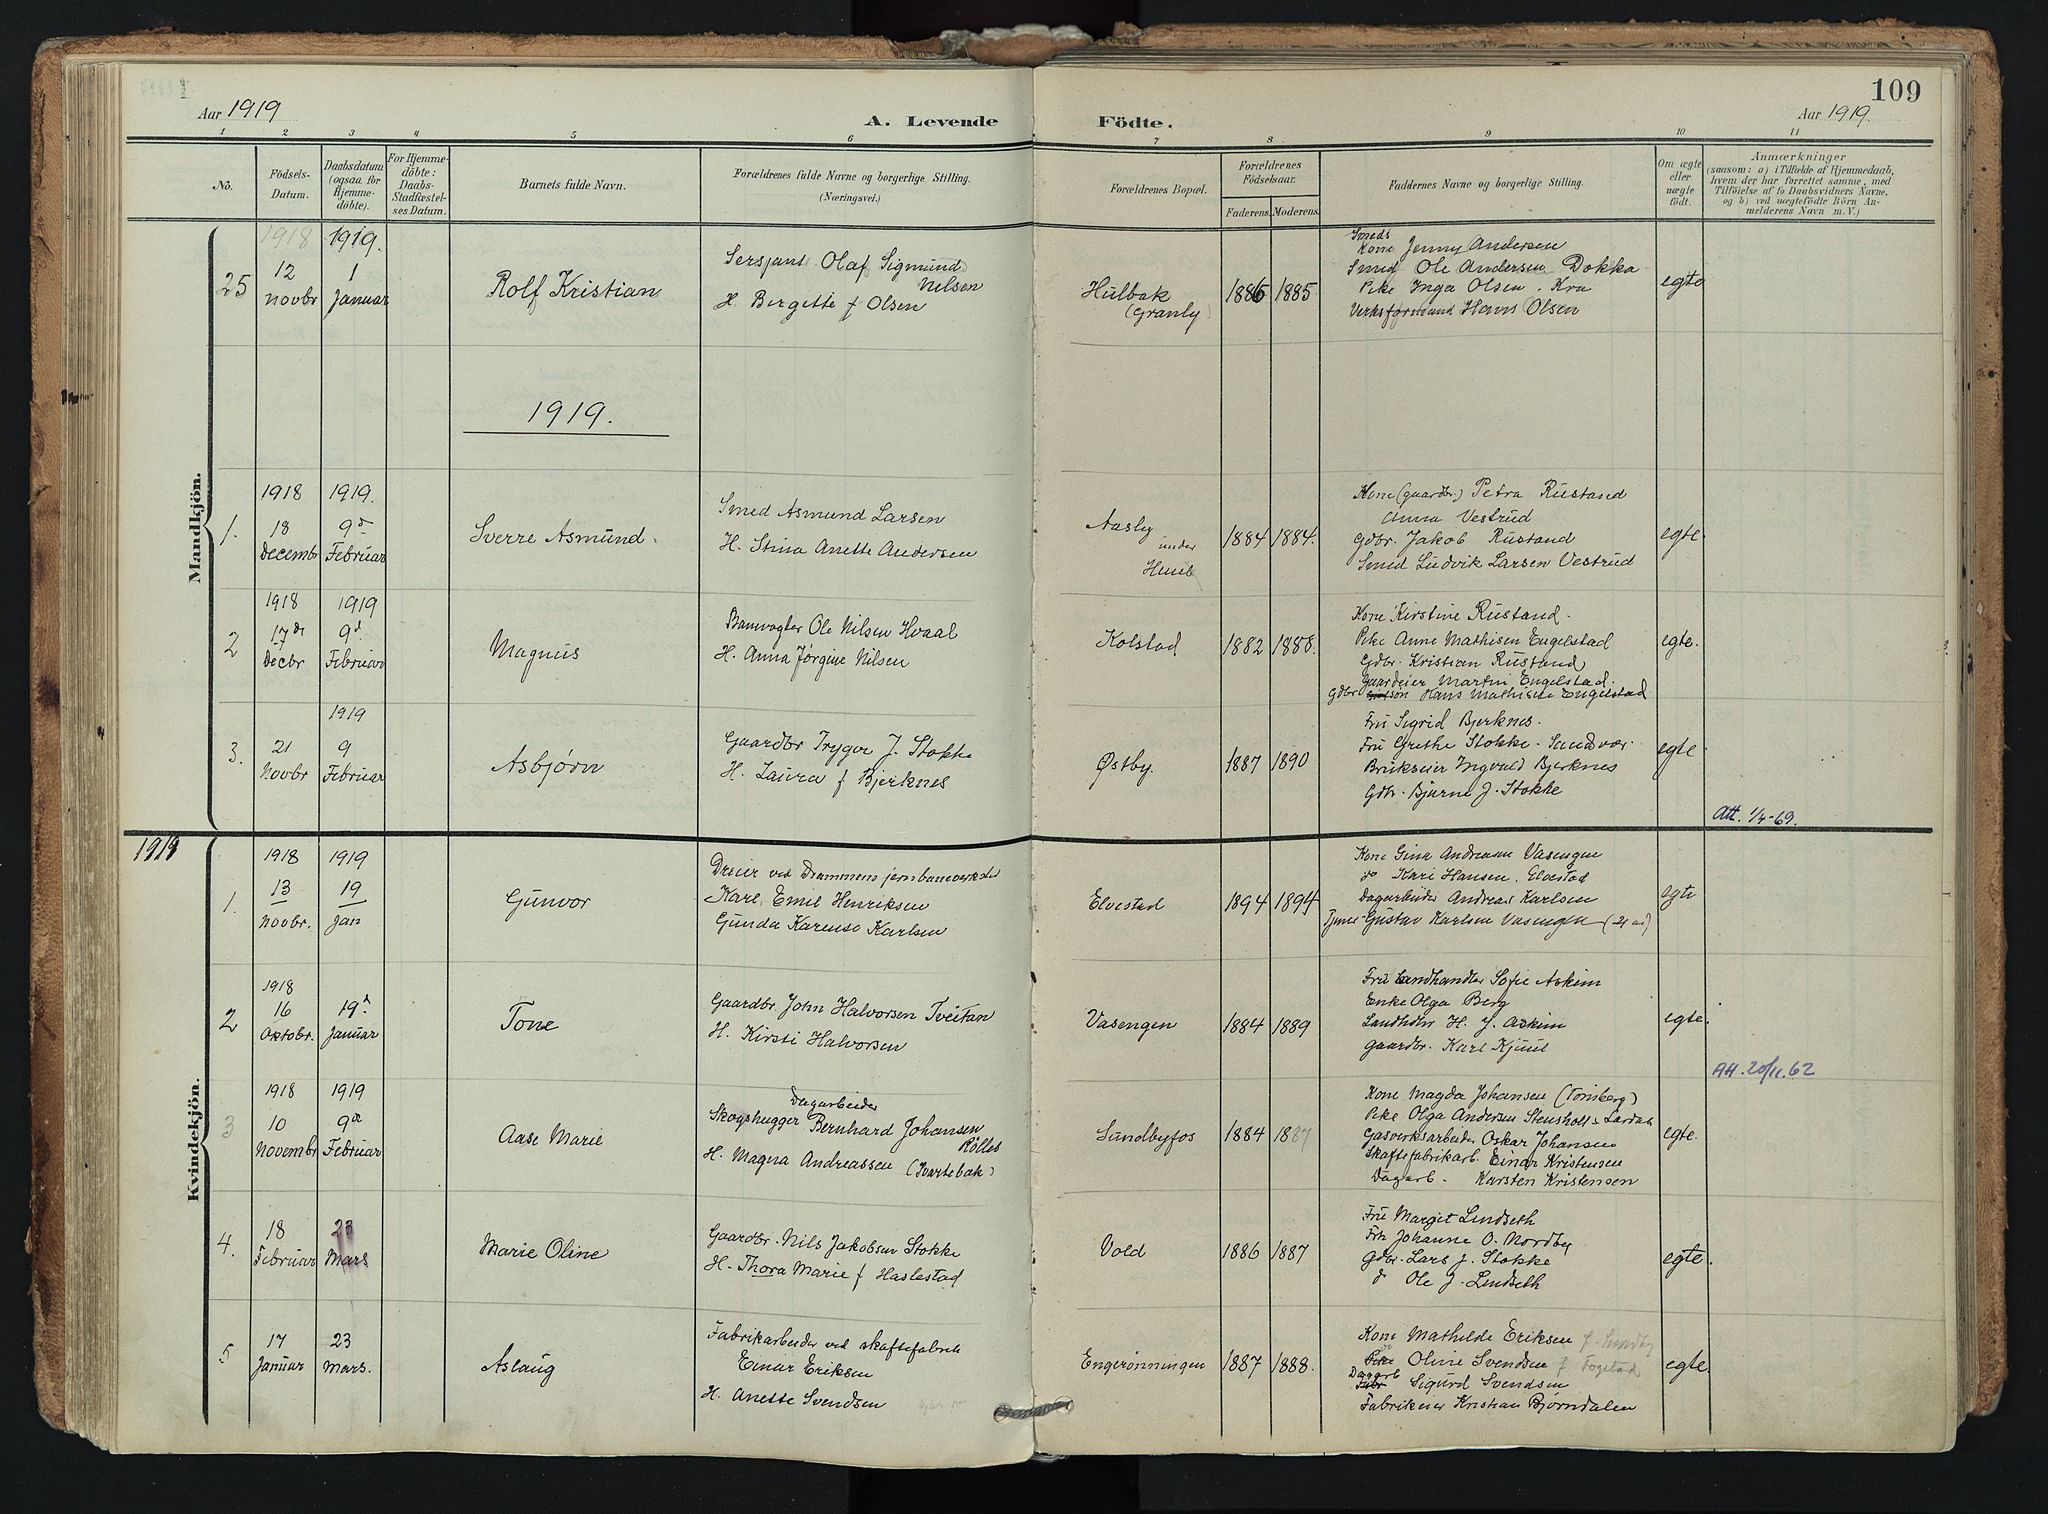 109
Aar 1919
A. Levende Födte.
Aar 1919.
1 2 3 4 5 6 7 8 9 10 11
No.
Födsels-Datum.
Daabsdatum (ogsaa for Hjemme-döbte).
For Hjemme-döbte: Daabs-Stadfæstel-ses Datum.
Barnets fulde Navn.
Forældrenes fulde Navne og borgerlige Stilling.
(Næringsvei.)
Forældrenes Bopæl.
Forældrenes Födselsaar.
Faderens. Moderens.
Faddernes Navne og borgerlige Stilling.
Om ægte eller uægte födt.
Anmærkninger
(saasom: a) i Tilfælde af Hjemmedaab,
hvem der har forrettet samme, med
Tilföielse af to Daabsvidners Navne,
og b) ved uægtefödte Börn An-
melderens Navn m. V.)
Mandkjön.
25
1918
12
Novbr
1919.
1
Januar
Rolf Kristian
Sersjant Olaf Sigmund
Nilsen
H. Bergette f Olsen
Hulbak
(Granly)
1886 1885
Smeds
Kone Jenny Andersen
Smed Ole Andersen Dokka
Pike Inga Olsen. Kra
Verksformand Hans Olsen
egte
1919.
1.
1918
18
Decembr
1919.
9d
Februar
Sverre Asmund.
Smed Asmund Larsen
H. Stina Anette Andersen
Aasly
under
1884 1884.
Kone (gaardbr.) Petra Rustand
Anna Vestrud
Gdbr. Jakob Rustand
Smed Ludvik Larsen Vestrud
egte.
2
1918
17de
Decbr
1919
9d
Februar
Magnus
Banevogter Ole Nilsen Hvaal
H. Anna Jørgine Nilsen
Kolstad
1882 1888.
Kone Kirstine Rustand.
Pike Anne Mathisen Engelstad
Gdbr. Kristian Rustand
Gaardeier Martin Engelstad.
Gdbr Hans Mathisen Engelstad
egte.
3.
21
Novbr
1919
9
Februar
Asbjørn
Gaardbr Trygve J. Stokke
H. Laura f Bjerknes
Østby.
1887 1890
Fru Sigrid Bjerknes.
Fru Grethe Stokke. Sandvær.
Brukseier Ingvald Bjerknes
Gdbr. Bjarne J. Stokke
egte
Att. 1/4-69.
1919
Kvindekjön.
1.
1918
13
Novbr.
1919
19
Jan
Gunvor
Dreier ved Drammens jernbaneverksted
Karl Emil Henriksen
Gunda Karense Karlsen
Elvestad
1894 1894
Kone Gina Andreasen Vasengen
do Kari Hansen. Elvestad
Dagarbeider Andreas Karlsen
Gustav Karlsen Vasengen (21 aar)
egte
2
1918
16
Oktobr.
19d
Januar
Tone
Gaardbr. John Halvorsen Tveitan
H. Kirsti Halvorsen
Vasengen
1884 1889
Fru Landhandler Sofie Askim
Enke Olga Berg
Landhdlr H. J. Askim
Gaardbr. Karl Kjuul
egte.
Att. 20/11.62
3
1918
10
Novembr
1919
9d
Februar
Aase Marie
Dagarbeider
Skogshugger Bernhard Johansen
H. Magna Andreassen (Svartebak)
Sundbyfos
1884 1887
Kone Magda Johansen (Tønsberg)
Pike Olga Andersen Stensholt - Lardal
Gasverksarbeider Oskar Johansen
Skaftefabrikarb. Einar Kristensen
Dagarb. Karsten Kristensen
egte.
4.
18
Februar
23
Mars
Marie Oline
Gaardbr. Nils Jakobsen Stokke
H. Thora Marie f Haslestad
Vold
1886 1887
Fru Margit Lindseth
Frk Johanne O. Nordby
Gdbr. Lars J. Stokke
do Ole J. Lindseth
egte.
5
17
Januar
23
Mars.
Aslaug
Fabrikarbeider ved skaftefabrik
Einar Eriksen
H. Anette Svendsen
Engerønningen
1887 1888.
Kone Mathilde Eriksen f. Sundby
Pike Oline Svendsen f Fogstad
Dagarb
Sigurd Svendsen
Fabrikeier Kristian Bjørndalen
egte.